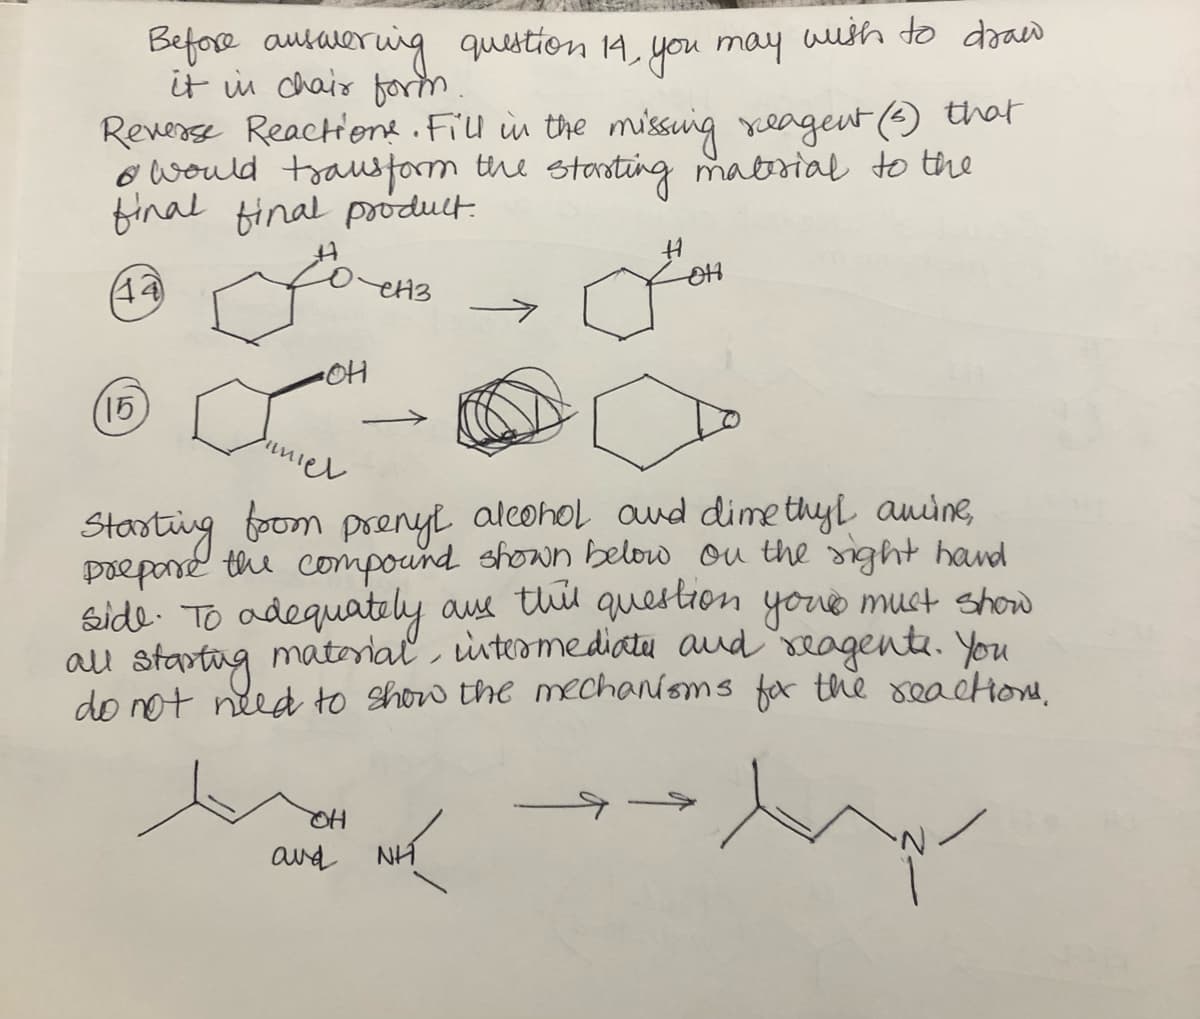 Before answering question 14, you may wish to draw
it in chair form.
Reverse Reactions. Fill in the missing reagent(s) that
would transform the starting material to the
final final product.
14
H
O CH3
H
OH
15
OH
Cl
O
Starting from prenyl alcohol and dimethyl amine,
prepare the compound shown below on the right hand
side. To adequately ans this question you must show
all starting material, intermediates and reagents. You
do not need to show the mechanisms for the reactions.
OH
and NH
N